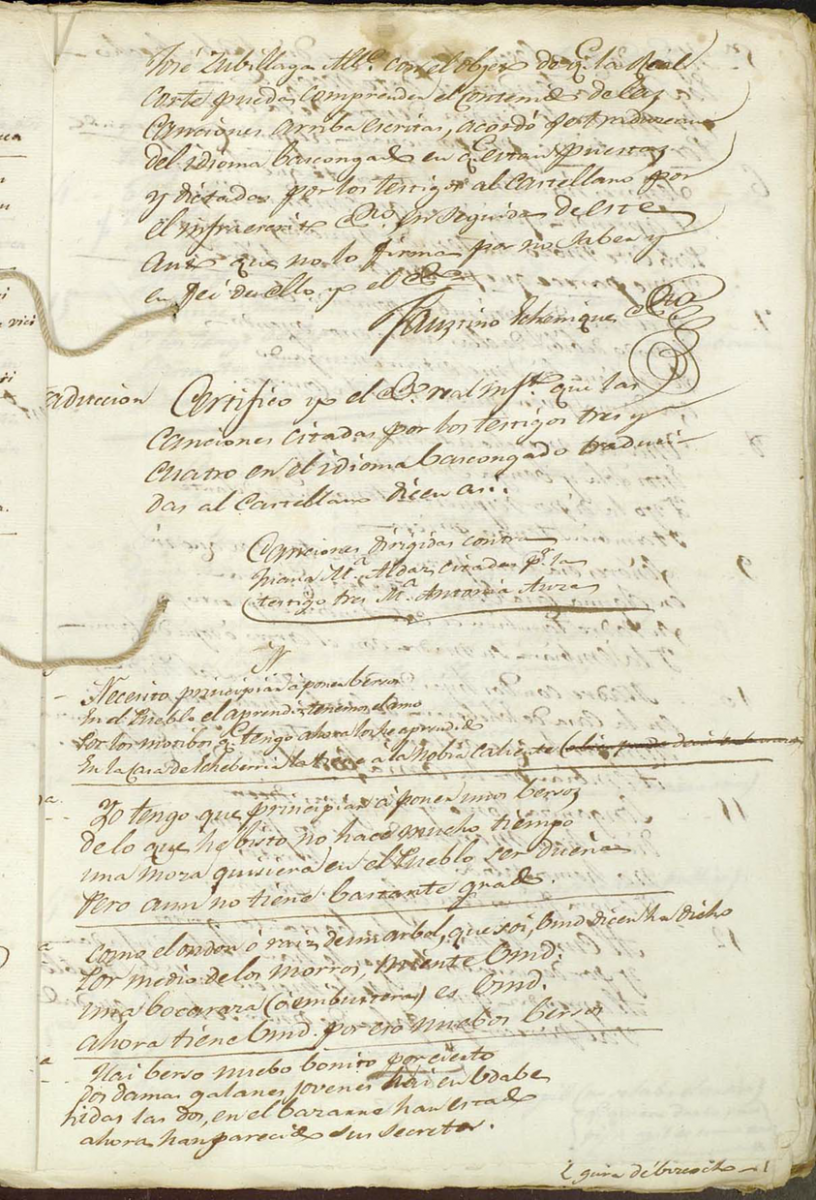 José Zubillaga Alle. con el objeto de q. la Real
Corte pueda comprender el contenido de las
Canciones arriba escritas, acordó se traduzcan
del idioma bascongado en q. estan puestas
y dictadas por los testigos al Castellano por
el infraescrito Esno. en seguida de este
auto que no lo firma por no saber y
en feé de ello yo el Eno.
Faustino Echenique Esno
aduccion Certifico yo el Es. real que las
canciones citadas por los testigos tres y
cuatro en el idioma bascongado traduci-
das al Castellano dicen asi.
Canciones dirigidas contra
Juana Ma. Aldaz citadas pr. la
testigo tres Ma. Antonia
Necesito principiar a poner bersos
En el Pueblo el aprendiz tenemos el amo
Por los motibos q. tengo ahora los he aprendido
En la Casa de Echeberria la a la Nobia caliente
Yo tengo que principiar á poner unos bersos
de lo que he bisto no hace mucho tiempo
una moza quisiera en el Pueblo ser dueña
Pero aun no tiene bastante grado.
Como el ondon ó raiz de un arbol, que soi, Vmd dicen ha dicho
Por medio de los morros, miente Vmd.
una bocaraza (ó embustera) es Vmd.
ahora tiene Vmd. por eso nuebos bersos
Hai berso nuebo bonito por cierto
Dos damas galanes jovenes hai en
las dos, en el han estado
ahora han parecido sus secretos.